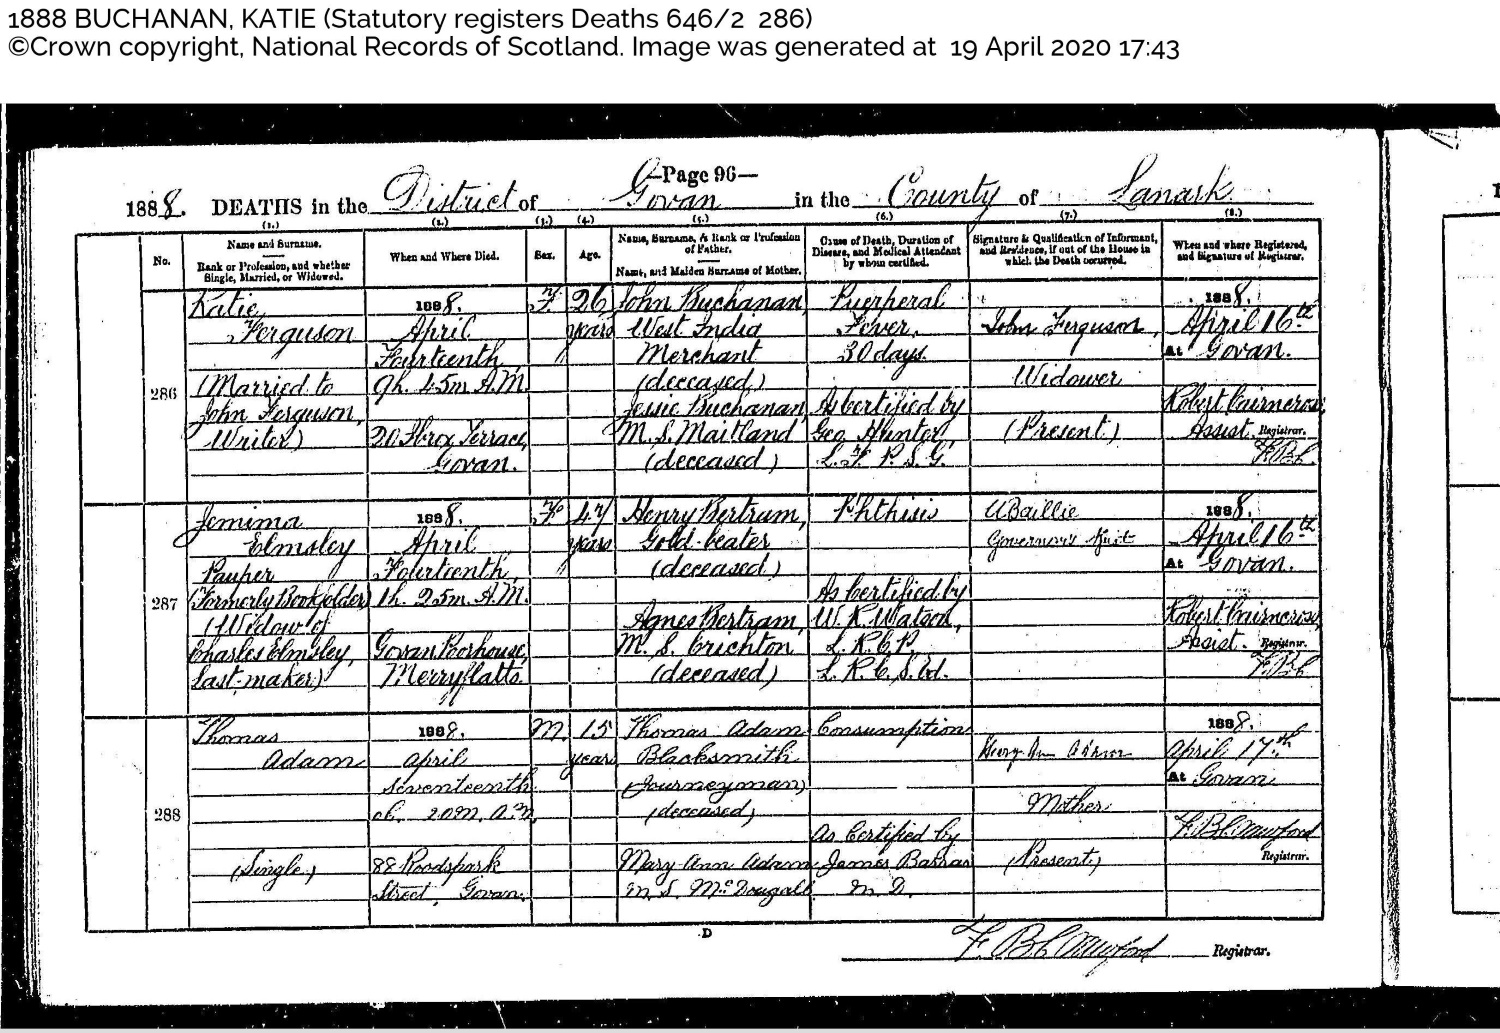 1888 BUCHANAN, KATIE (Statutory registers Deaths 646/2 286)
©Crown copyright, National Records of Scotland. Image was generated at 19 April 2020 17:43
—Page 96—
1888. DEATHS in the District of Govan in the County of Lanark
(1.) (2.) (3.) (4.) (5.) (6.) (7.) (8.)
No.
Name and Surname.
Rank or Profession, and whether
Single, Married, or Widowed.
When and Where Died.
Sex.
Age.
Name, Surname, & Rank or Profession
of Father.
Name, and Maiden Surname of Mother.
Cause of Death, Duration of
Disease, and Medical Attendant
by whom certified.
Signature & Qualification of Informant,
and Residence, if out of the House in
which the Death occurred.
When and where Registered,
and Signature of Registrar.
286
Katie
Ferguson
(Married to
John Ferguson,
Writer)
1888.
April
Fourteenth
9h. 45m. A.M.
20 Ibrox Terrace,
Govan.
F.
26
years
John Buchanan,
West India
Merchant
(deceased)
Jessie Buchanan,
M.S. Maitland
(deceased)
Puerperal
Fever,
30 days.
As Certified by
Geo. Hunter,
L.F.P.S.G.
John Ferguson,
Widower
(Present)
1888.
April 16th
At Govan.
Robert Cairncross,
Assist. Registrar.
F.B.C.
287
Jemima
Elmsley
Pauper
(Formerly Bookfolder)
(Widow of
Charles Elmsley,
Last-maker)
1888.
April
Fourteenth,
1h. 25m. A.M.
Govan Poorhouse,
Merryflatts.
F.
47
years
Henry Bertram,
Gold-beater
(deceased)
Agnes Bertram,
M.S. Crichton
(deceased)
Phthisis
As Certified by
W. R. Watson,
L.R.C.P.
L.R.C.S. Ed.
Baillie
Governor
1888.
April 16th
At Govan.
Robert Cairncross,
Assist. Registrar.
F.B.C.
288
Thomas
Adam
(Single)
1888.
April
Seventeenth
0h. 20m. A.M.
88
Street, Govan.
M.
15
years
Thomas Adam
Blacksmith
(Journeyman)
(deceased)
Mary Ann Adam
M.S. McDougall
Consumption
As Certified by
James Barras
M.D.
Ann Adam
Mother
(Present)
1888.
April 17th
At Govan
F.B. Crawford
Registrar.
D
F. B. Crawford Registrar.